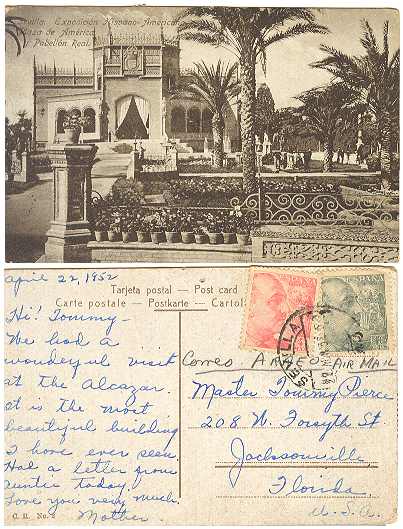 Sevilla. Exposición Hispano-Americana
Plaza de América
Pabellón Real.
april 22, 1952
Tarjeta postal — Post card
Carte postale — Postkarte — Cartol
Hi! Tommy—
We had a
wonderful visit
at the Alcazar.
It is the most
beautiful building
I have ever seen.
Had a letter from
auntie today.
Love you very much.
Mother
C. R. No. 2
ESPAÑA
SEVILLA
Correo AEREO AIR MAIL
Master Tommy Pierce
208 W. Forsyth St
Jacksonville
Florida
U.S.A.